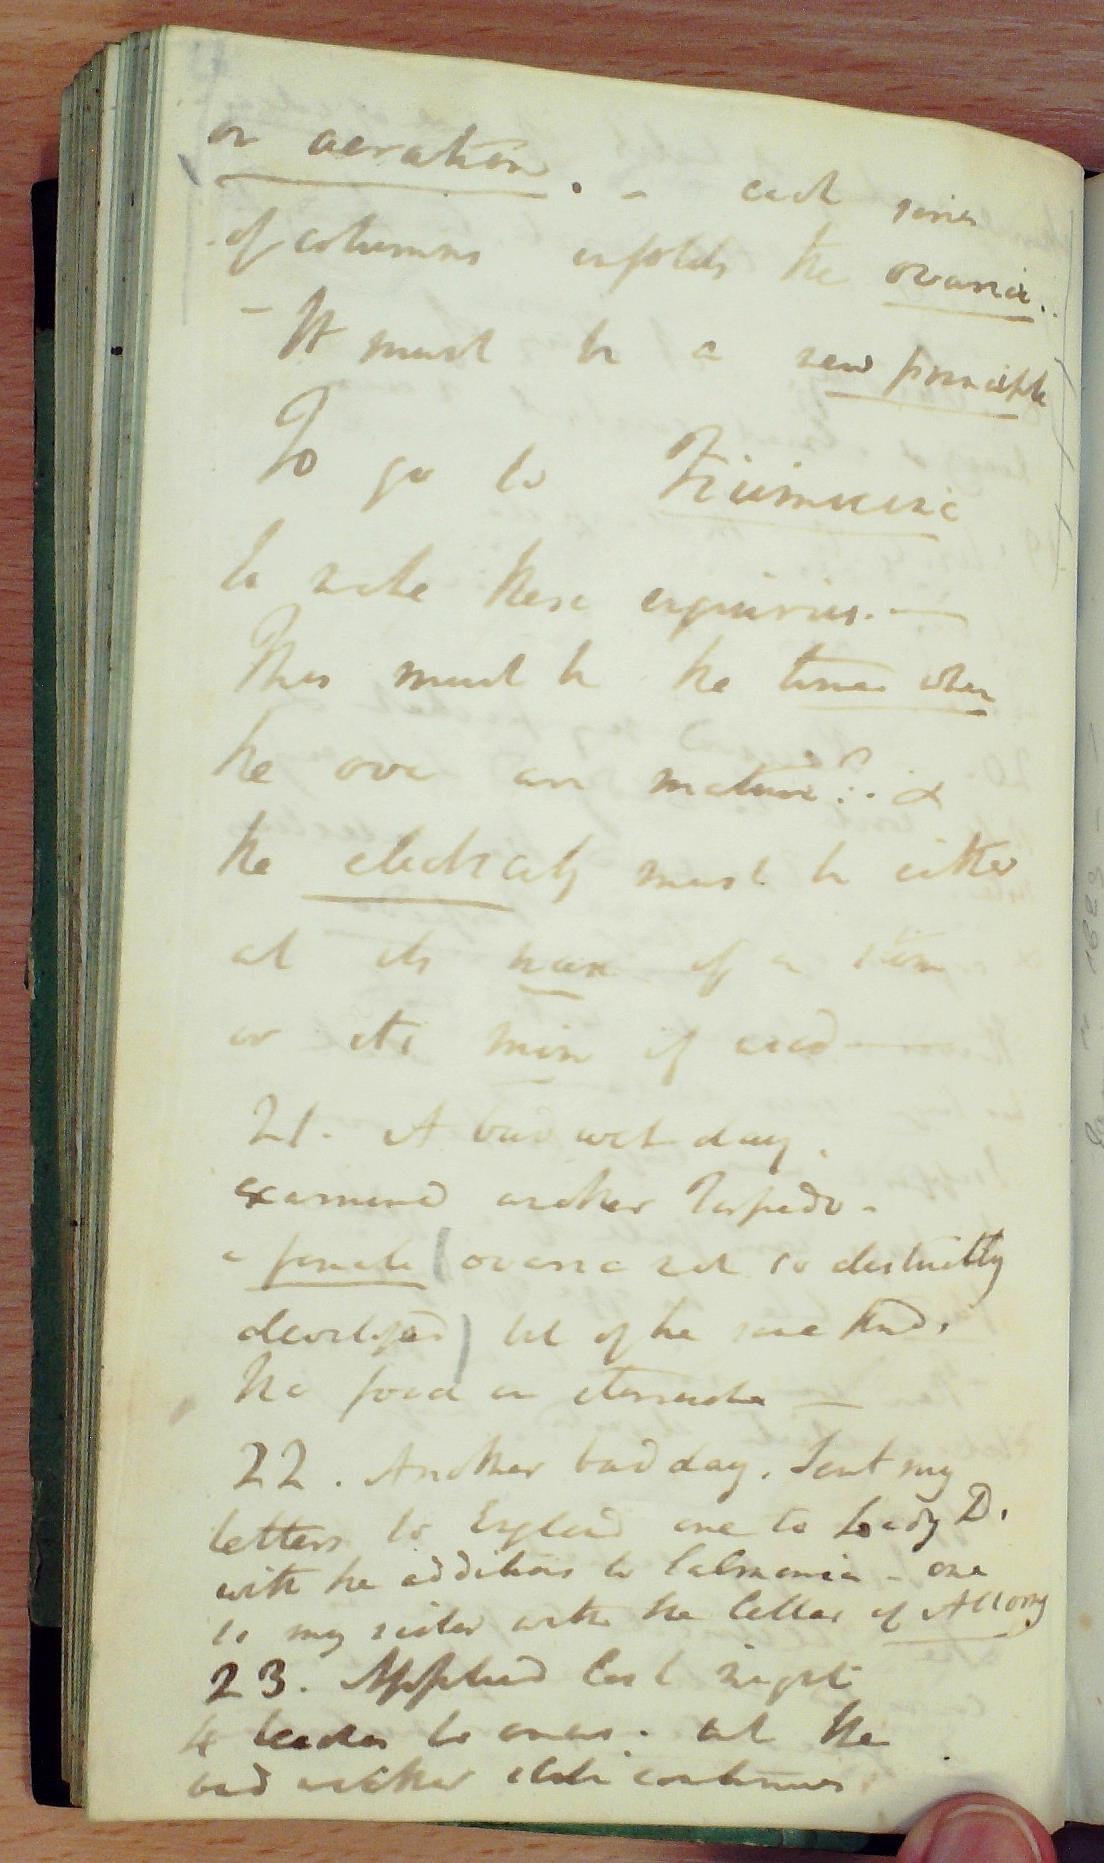 or aeration. - each series
of columns enfolds the ovaria..
- It must be a new principle
To go to Fiumicino
to make these enquiries. —
This must be the time when
the ova are mature?. &
the electricity must be either
at its max if a stim
or its min if used —
21. A bad wet day.
examined another Torpedo -
a female (ovaria not so distinctly
developed) but of the same kind.
No food in stomach —
22. Another bad day. Sent my
letters to England one to Lady D.
with the additions to Salmonia - one
to my sister with the letter of Attorny
23. Applied last night
4 leeches to anus. but the
bad weather still continues